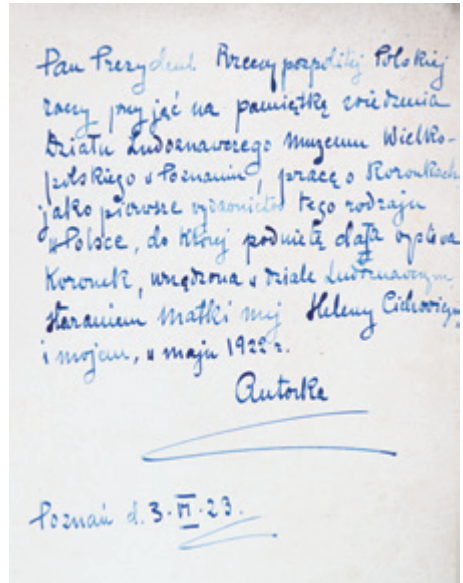 Pan Prezydent Rzeczypospolitej Polskiej
raczy przyjąć na pamiątkę zwiedzenia
Działu Ludoznawczego Muzeum Wielko-
polskiego w Poznaniu, pracę o Koronkach,
jako pierwsze wydawnictwo tego rodzaju
w Polsce, do której podnietę dała wystawa
Koronek, urządzona w dziale Ludoznawczym,
staraniem matki mej Heleny Cichowicz
i mojem, w maju 1922 r.
Autorka
Poznań d. 3·VI·23.